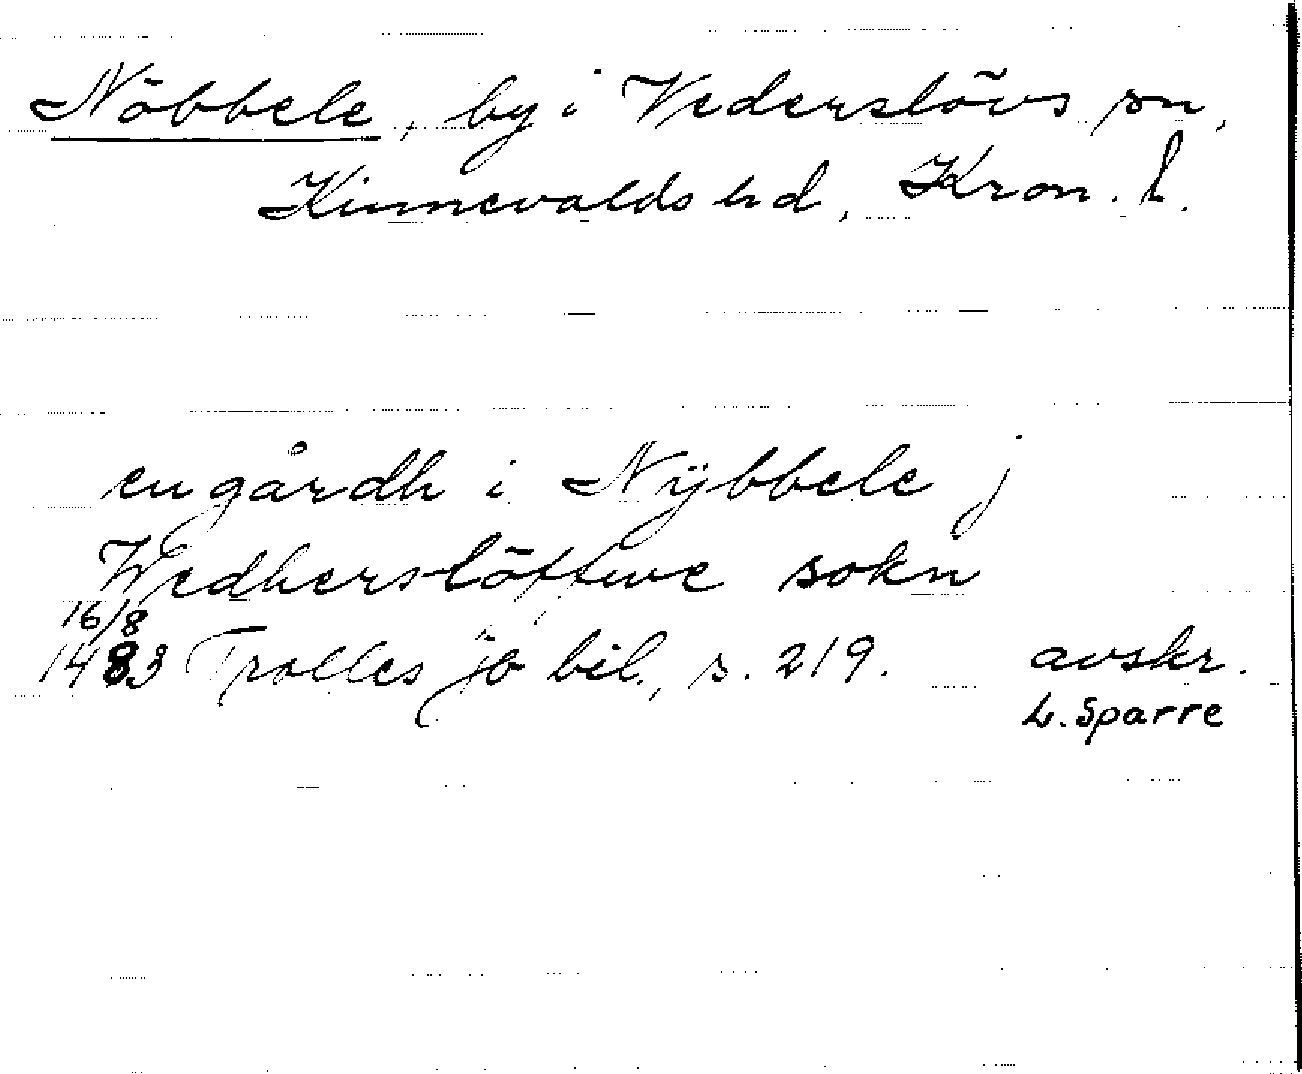 Nöbbele, by i Vederslövs sn,
Kinnevalds hd, Kron. l.
en gårdh i Nÿbbele j
Wedherslöffwe sokn
16/8
1483 Trolles jb bil., s. 219. avskr.
L. Sparre